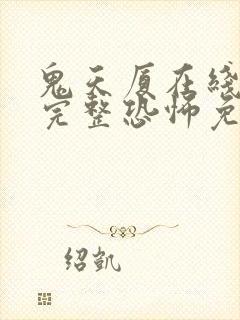 鬼天厦在线
完整恐怖免
绍凯